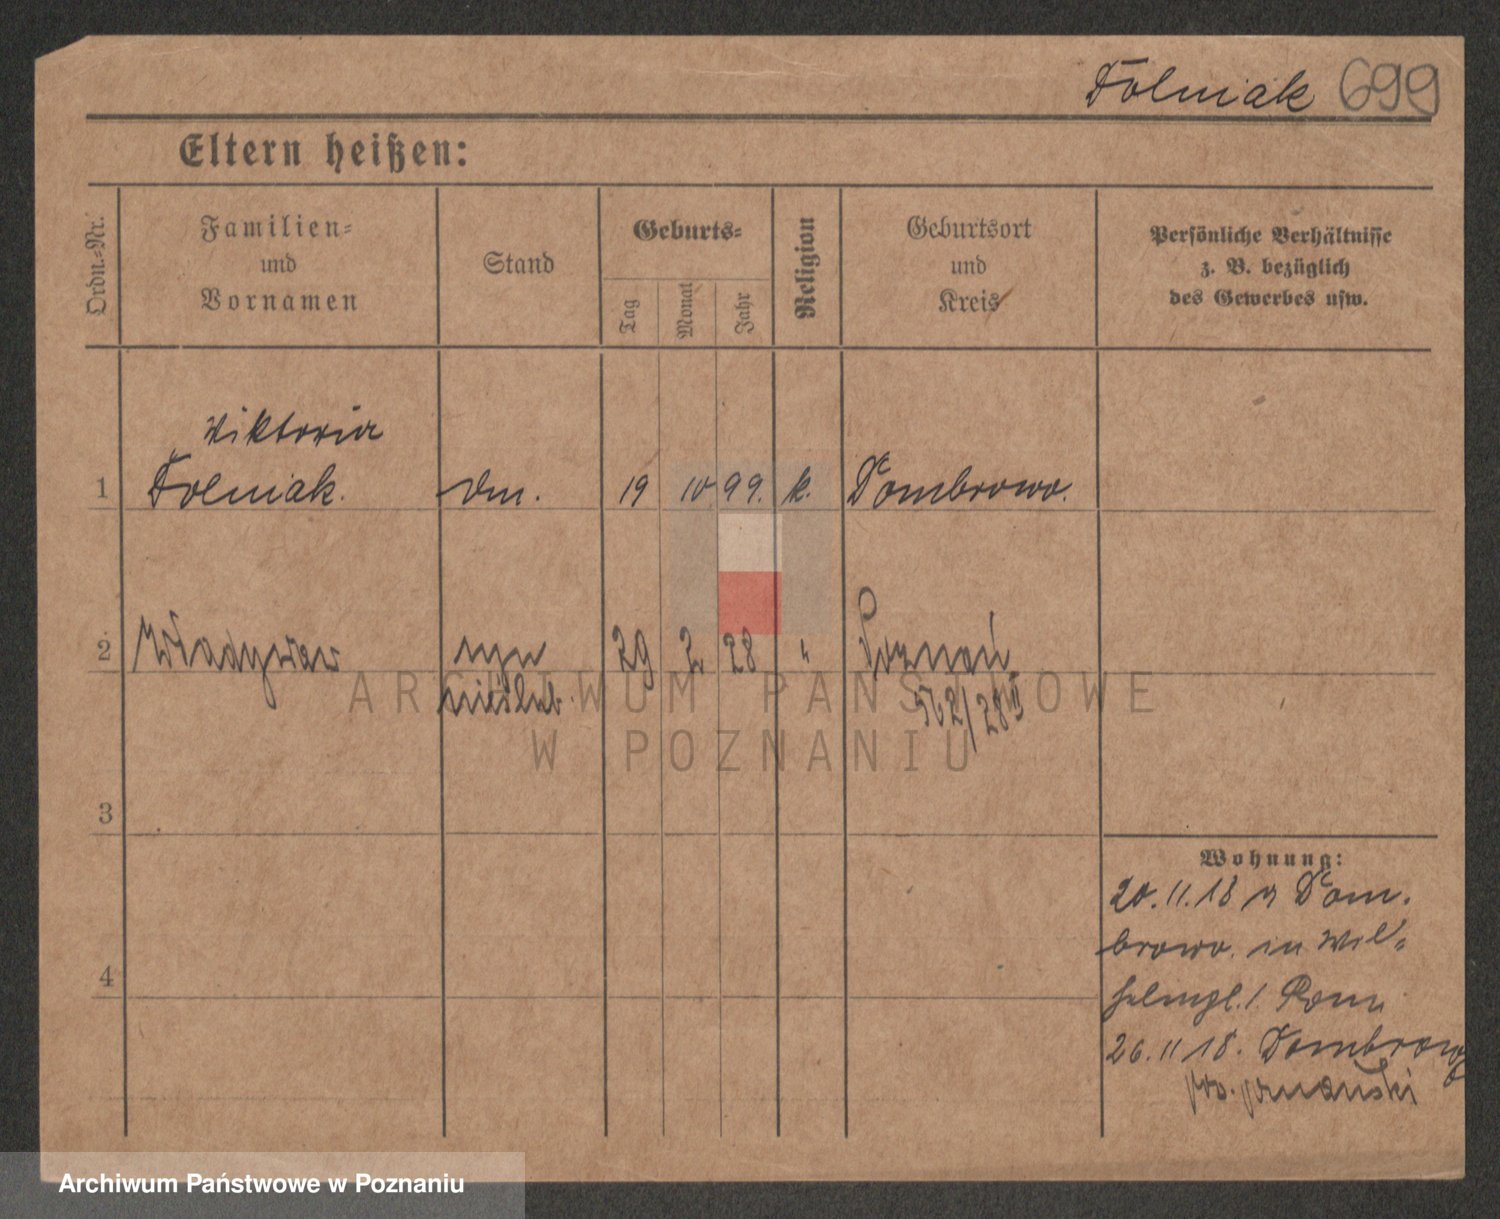 Tolniak 699
Eltern heißen:
Ordn.-Nr.
Familien=
und
Vornamen
Stand
Geburts=
Tag
Monat
Jahr
Religion
Geburtsort
und
Kreis
Persönliche Verhältnisse
z. B. bezüglich
des Gewerbes usw.
Wiktoria
1 Tolniak. 19 10 99. k. Dombrowo.
2 Władysław syn 29 2 28 " Poznań
nieślub. 562/28 II
3
4
Wohnung:
20.11.18 Dom-
browo. in Wil-
26.11 18. Dombrowo
ARCHIWUM PAŃSTWOWE
W POZNANIU
Archiwum Państwowe w Poznaniu